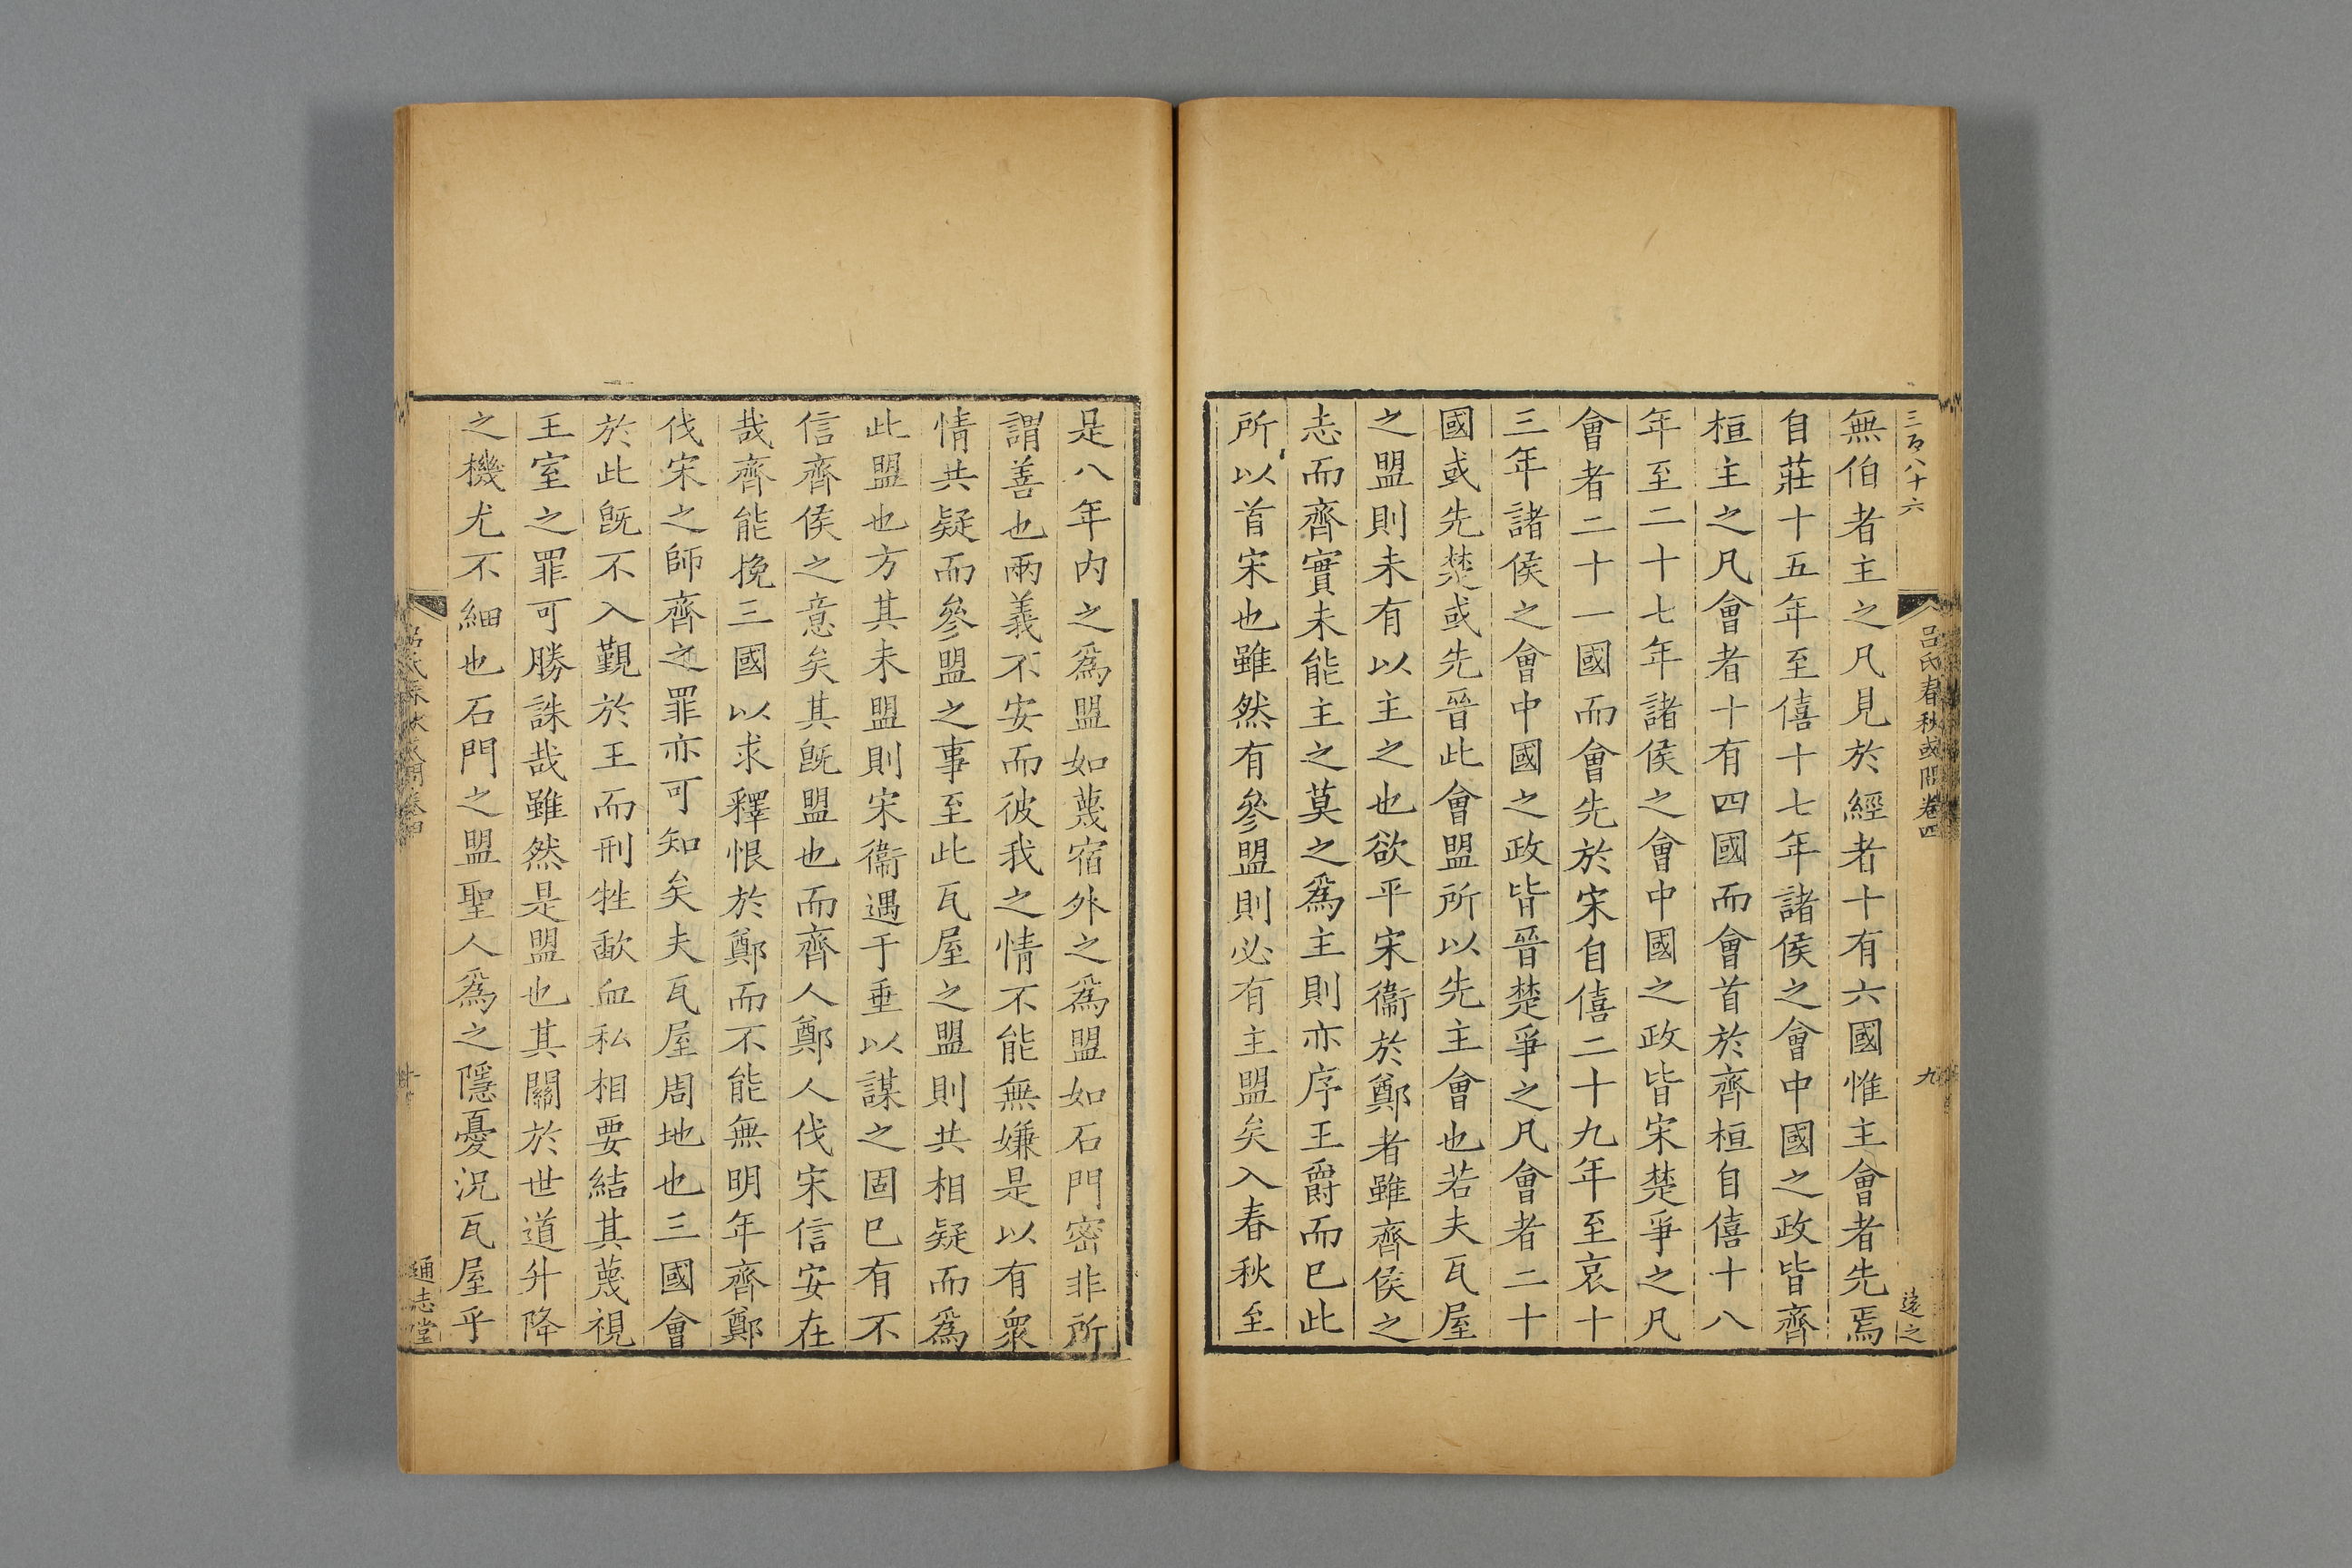 三百八十六
呂氏春秋或問卷四
九
遠之
無伯者主之凡見於經者十有六國惟主會者先焉
自莊十五年至僖十七年諸侯之會中國之政皆齊
桓主之凡會者十有四國而會首於齊桓自僖十八
年至二十七年諸侯之會中國之政皆宋楚爭之凡
會者二十一國而會先於宋自僖二十九年至哀十
三年諸侯之會中國之政皆晉楚爭之凡會者二十
國或先楚或先晉此會盟所以先主會也若夫瓦屋
之盟則未有以主之也欲平宋衞於鄭者雖齊侯之
志而齊實未能主之莫之爲主則亦序王爵而已此
所以首宋也雖然有參盟則必有主盟矣入春秋至
是八年内之爲盟如蔑宿外之爲盟如石門密非所
謂善也兩義不安而彼我之情不能無嫌是以有衆
情共疑而參盟之事至此瓦屋之盟則共相疑而爲
此盟也方其未盟則宋衞遇于垂以謀之固已有不
信齊侯之意矣其旣盟也而齊人鄭人伐宋信安在
哉齊能挽三國以求釋恨於鄭而不能無明年齊鄭
伐宋之師齊之罪亦可知矣夫瓦屋周地也三國會
於此旣不入覲於王而刑牲歃血私相要結其蔑視
王室之罪可勝誅哉雖然是盟也其關於世道升降
之機尤不細也石門之盟聖人爲之隱憂況瓦屋乎
呂氏春秋或問卷四
十
通志堂